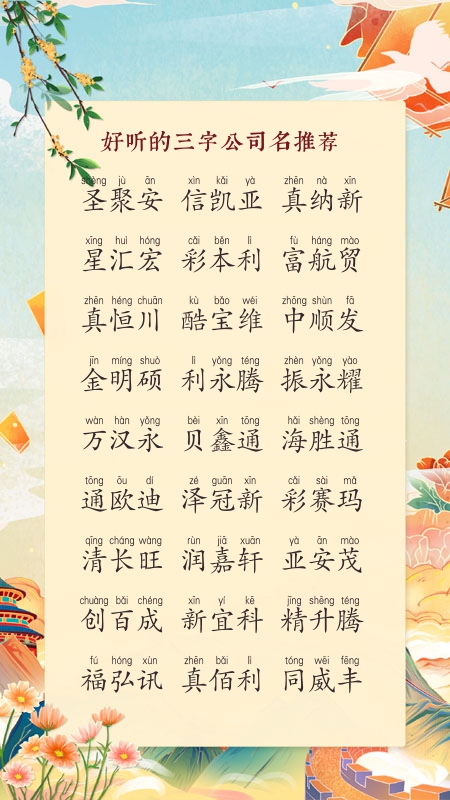 好听的三字公司名推荐
shèng jù ān xìn kǎi yà zhēn nà xīn
圣聚安 信凯亚 真纳新
xīng huì hóng cǎi běn lì fù háng mào
星汇宏 彩本利 富航贸
zhēn héng chuān kù bǎo wéi zhōng shùn fā
真恒川 酷宝维 中顺发
jīn míng shuò lì yǒng téng zhèn yǒng yào
金明硕 利永腾 振永耀
wàn hàn yǒng bèi xīn tōng hǎi shèng tōng
万汉永 贝鑫通 海胜通
tōng ōu dí zé guān xīn cǎi sài mǎ
通欧迪 泽冠新 彩赛玛
qīng cháng wàng rùn jiā xuān yà ān mào
清长旺 润嘉轩 亚安茂
chuàng bǎi chéng xīn yí kē jīng shēng téng
创百成 新宜科 精升腾
fú hóng xùn zhēn bǎi lì tóng wēi fēng
福弘讯 真佰利 同威丰